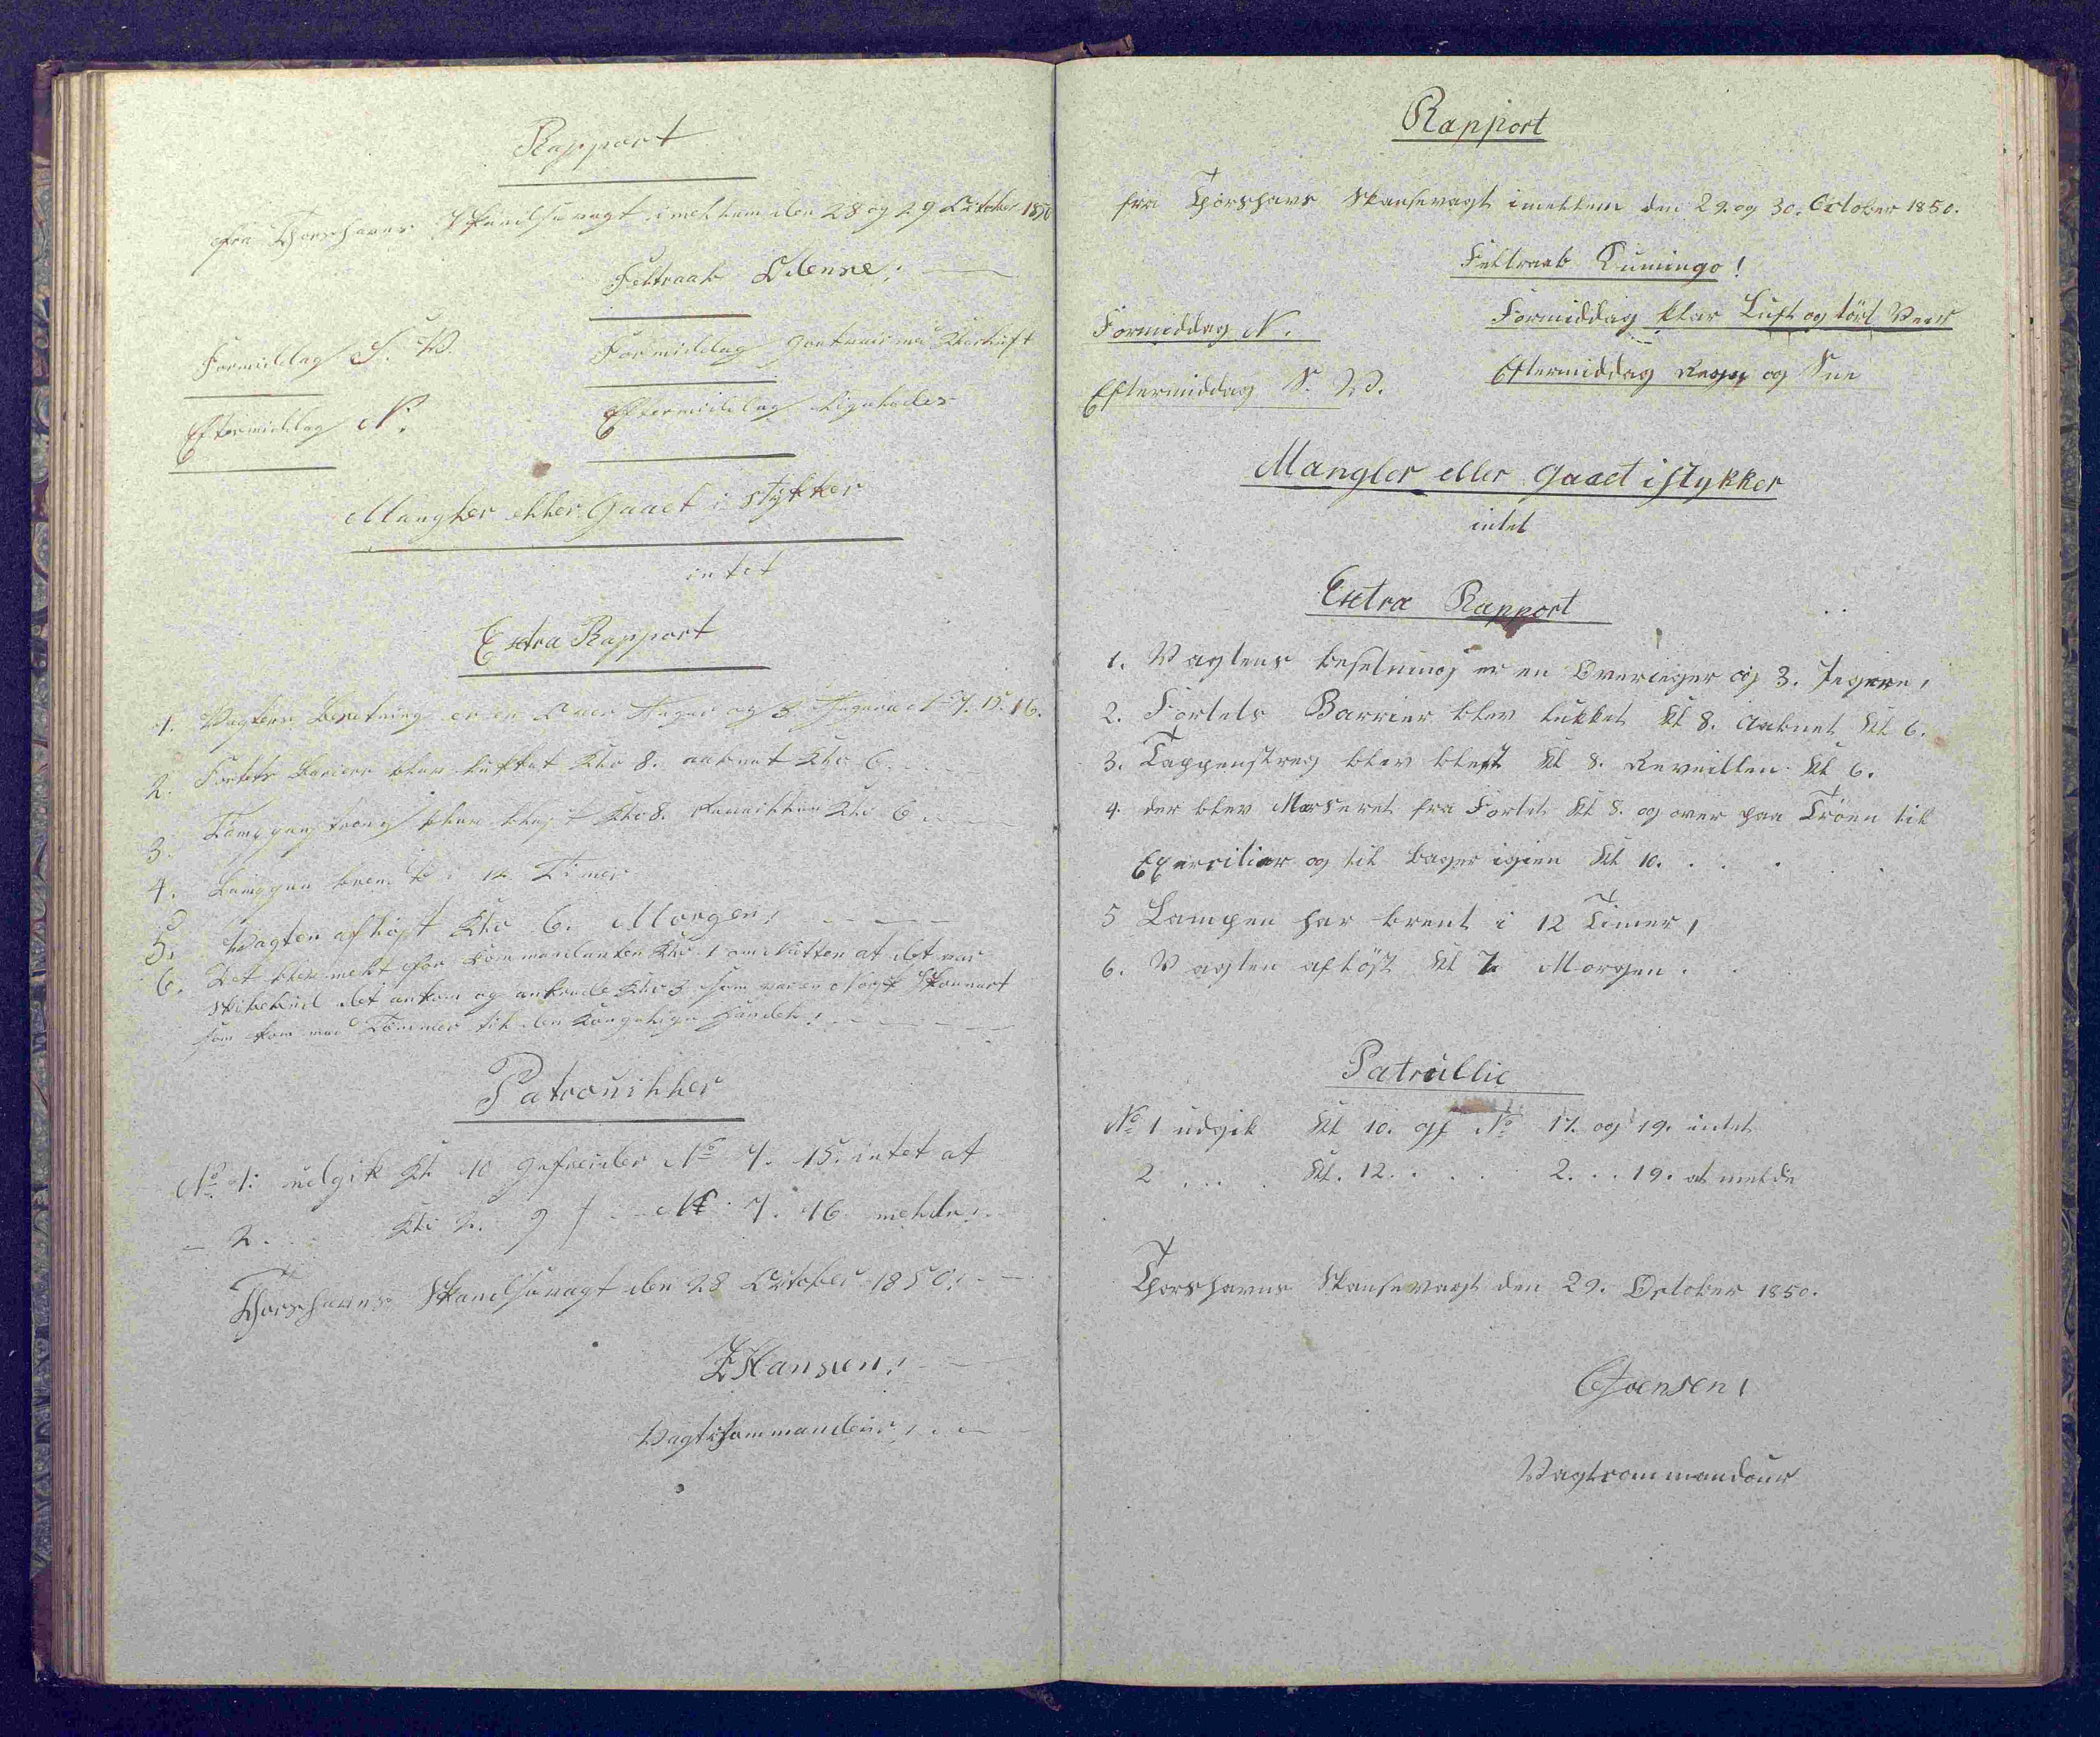 Rapport
fra Thorshavns Skandsevagt imellem den 28 og 29 October 1850
Feltraab Odense!
Formiddag S. W. Formiddag godtveir med Klarluft
Eftermiddag N: Eftermiddag ligeledes
Mangler eller Gaaet i stykker
intet
Extra Rapport
1. Vagtens Besetning er en Over Jæger og 3 Jægere N 7. 15. 16.
2. Fortets Barierr blev lukket Klo 8. aabnet Klo 6.
3. blev blæst Klo 8. Reveillen Klo 6
4. Lampen brendt i 12 Timer
5. Vagten afløst Klo 6. Morgen!
6. Det blev meldt for Kommandanten Klo 1 om Natten at det var
Skibebud det ankom og ankrede Klo 3 som var en Norsk Skonnert
som kom med Tømmer til den Kongelige Handel!
Patrouiller
No 1: udgik Kl. 10 gefreider No 7. 15. intet at
- 2. Klo 2. gf No 7. 16 melde!
Thorshavns Skandsevagt den 28 October 1850!
Z Hansen!
Vagtkommandeur
Rapport
fra Thorshavs Skansevagt imellem den 29. og 30. October 1850.
Feltraab Dumingo!
Formiddag N. Formiddag klar Luft og tört Veer
Eftermiddag S. W. Eftermiddag Regn og Sne
Mangler eller Gaaet istykker
intet
Extra Rapport
1. Vagtens besetning er en Overieger og 3. Jegere,
2. Fortets Barrier blev lukket Kl 8. Aabnet Kl 6.
3. Tappenstreg blev blest Kl 8. Reveillen Kl 6.
4. der blev Marseret fra Fortet Kl 8. og over paa Tröen til
Exercitier og til bages igien Kl 10.
5 Lampen har brent i 12 Timer,
6. Vagten aflöst Kl 7 Morgen.
Patrullie
No 1 udgik Kl 10. gf No 17. og 19. intet
2 Kl. 12. 2. 19. at melde
Thorshavns Skansevagt den 29. October 1850.
Joensen,
Vagtcommandeur